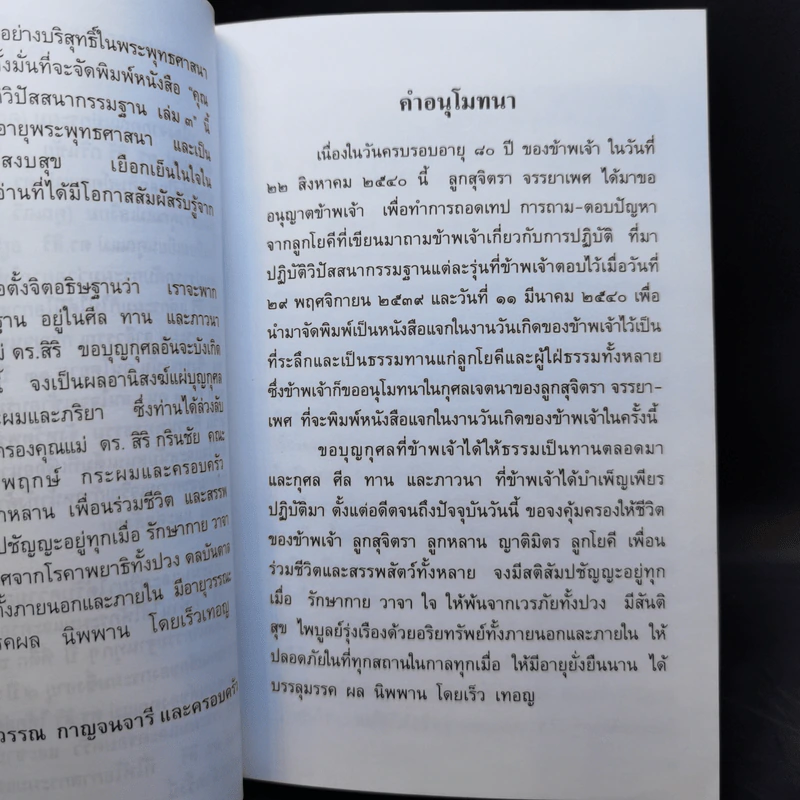 อย่างบริสุทธิ์ในพระพุทธศาสนา
ตั้งมั่นที่จะจัดพิมพ์หนังสือ "คุณ
วิปัสสนากรรมฐาน เล่ม ๓" นี้
อายุพระพุทธศาสนา และเป็น
สงบสุข เยือกเย็นในใจใน
อ่านที่ได้มีโอกาสสัมผัสรับรู้จาก
ตั้งจิตอธิษฐานว่า เราจะพาก
ฐาน อยู่ในศีล ทาน และภาวนา
ดร.สิริ ขอบุญกุศลอันจะบังเกิด
จงเป็นผลอานิสงฆ์แผ่บุญกุศล
ะผมและภริยา ซึ่งท่านได้ล่วงลับ
ครองคุณแม่ ดร. สิริ กรินชัย คณะ
พฤกษ์ กระผมและครอบครัว
หลาน เพื่อนร่วมชีวิต และสรรพ
ปชัญญะอยู่ทุกเมื่อ รักษากาย วาจา
ศจากโรคาพยาธิทั้งปวง ดลบันดาล
ทั้งภายนอกและภายใน มีอายุวรรณะ
รคผล นิพพาน โดยเร็วเทอญ
วรรณ กาญจนจารี และครอบครัว
คำอนุโมทนา
เนื่องในวันครบรอบอายุ ๘๐ ปี ของข้าพเจ้า ในวันที่
๒๒ สิงหาคม ๒๕๔๐ นี้ ลูกสุจิตรา จรรยาเพศ ได้มาขอ
อนุญาตข้าพเจ้า เพื่อทำการถอดเทป การถาม-ตอบปัญหา
จากลูกโยคีที่เขียนมาถามข้าพเจ้าเกี่ยวกับการปฏิบัติ ที่มา
ปฏิบัติวิปัสสนากรรมฐานแต่ละรุ่นที่ข้าพเจ้าตอบไว้เมื่อวันที่
๒๙ พฤศจิกายน ๒๕๓๙ และวันที่ ๑๑ มีนาคม ๒๕๔๐ เพื่อ
นำมาจัดพิมพ์เป็นหนังสือแจกในงานวันเกิดของข้าพเจ้าไว้เป็น
ที่ระลึกและเป็นธรรมทานแก่ลูกโยคีและผู้ใฝ่ธรรมทั้งหลาย
ซึ่งข้าพเจ้าก็ขออนุโมทนาในกุศลเจตนาของลูกสุจิตรา จรรยา-
เพศ ที่จะพิมพ์หนังสือแจกในงานวันเกิดของข้าพเจ้าในครั้งนี้
ขอบุญกุศลที่ข้าพเจ้าได้ให้ธรรมเป็นทานตลอดมา
และกุศล ศีล ทาน และภาวนา ที่ข้าพเจ้าได้บำเพ็ญเพียร
ปฏิบัติมา ตั้งแต่อดีตจนถึงปัจจุบันวันนี้ ขอจงคุ้มครองให้ชีวิต
ของข้าพเจ้า ลูกสุจิตรา ลูกหลาน ญาติมิตร ลูกโยคี เพื่อน
ร่วมชีวิตและสรรพสัตว์ทั้งหลาย จงมีสติสัมปชัญญะอยู่ทุก
เมื่อ รักษากาย วาจา ใจ ให้พ้นจากเวรภัยทั้งปวง มีสันติ
สุข ไพบูลย์รุ่งเรืองด้วยอริยทรัพย์ทั้งภายนอกและภายใน ให้
ปลอดภัยในที่ทุกสถานในกาลทุกเมื่อ ให้มีอายุยั่งยืนนาน ได้
บรรลุมรรค ผล นิพพาน โดยเร็ว เทอญ